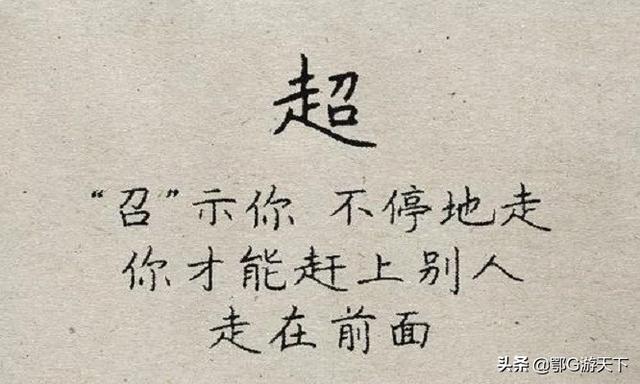 超
“召”示你 不停地走
你才能赶上别人
走在前面
头条 @鄂G游天下